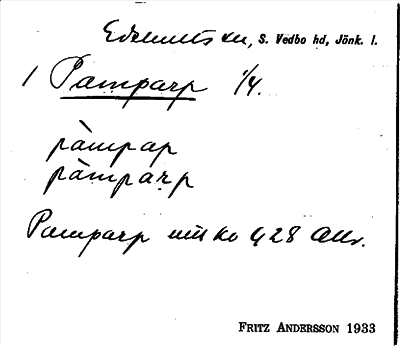 Edshults sn, S. Vedbo hd, Jönk. l.
1 Pamparp 1/4.
pàmpap
pàmparp
Pamparp 428
FRITZ ANDERSSON 1933